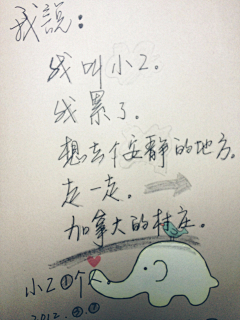 我說：
我叫小Z。
我累了。
想去个安静的地方。
走一走。
加拿大的村庄。
小Z①个人。
2012.